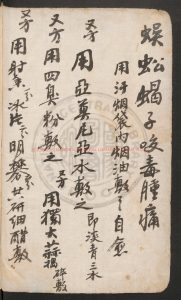 蜈蚣蝎子咬毒腫痛
用汙烟袋内烟油敷之自愈
又方 用亞莫尼亞水敷之 即淡青三水
又方 用四臭粉敷之 又方 用獨大蒜搗碎敷
又方 用射香冰片下明礬共研細醋敷